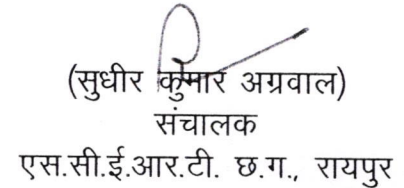 (सुधीर कुमार अग्रवाल)
संचालक
एस.सी.ई.आर.टी. छ.ग., रायपुर